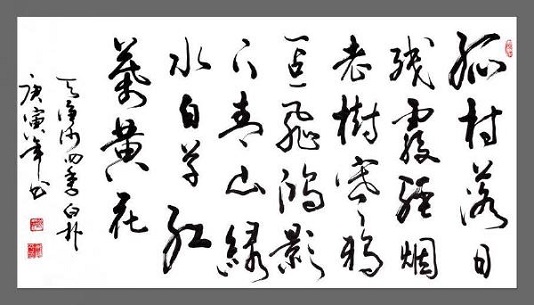 孤村落日
残霞轻烟
老樹寒鸦
一点飛鸿影
下青山绿
水白草红
葉黄花
天净沙四季白朴
庚寅年书